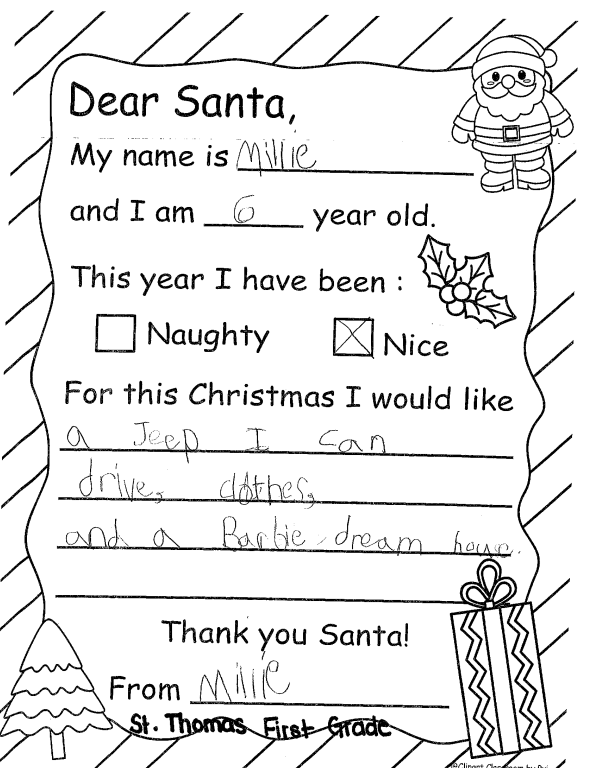 Dear Santa,
My name is Millie
and I am 6 year old.
This year I have been :
Naughty Nice
For this Christmas I would like
a Jeep I can
drive, clothes,
and a Barbie dream house.
Thank you Santa!
From Millie
St. Thomas First Grade